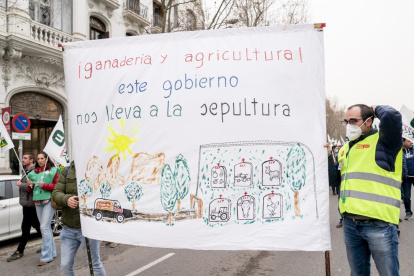 ¡ganadería y agricultura!
este gobierno
nos lleva a la sepultura